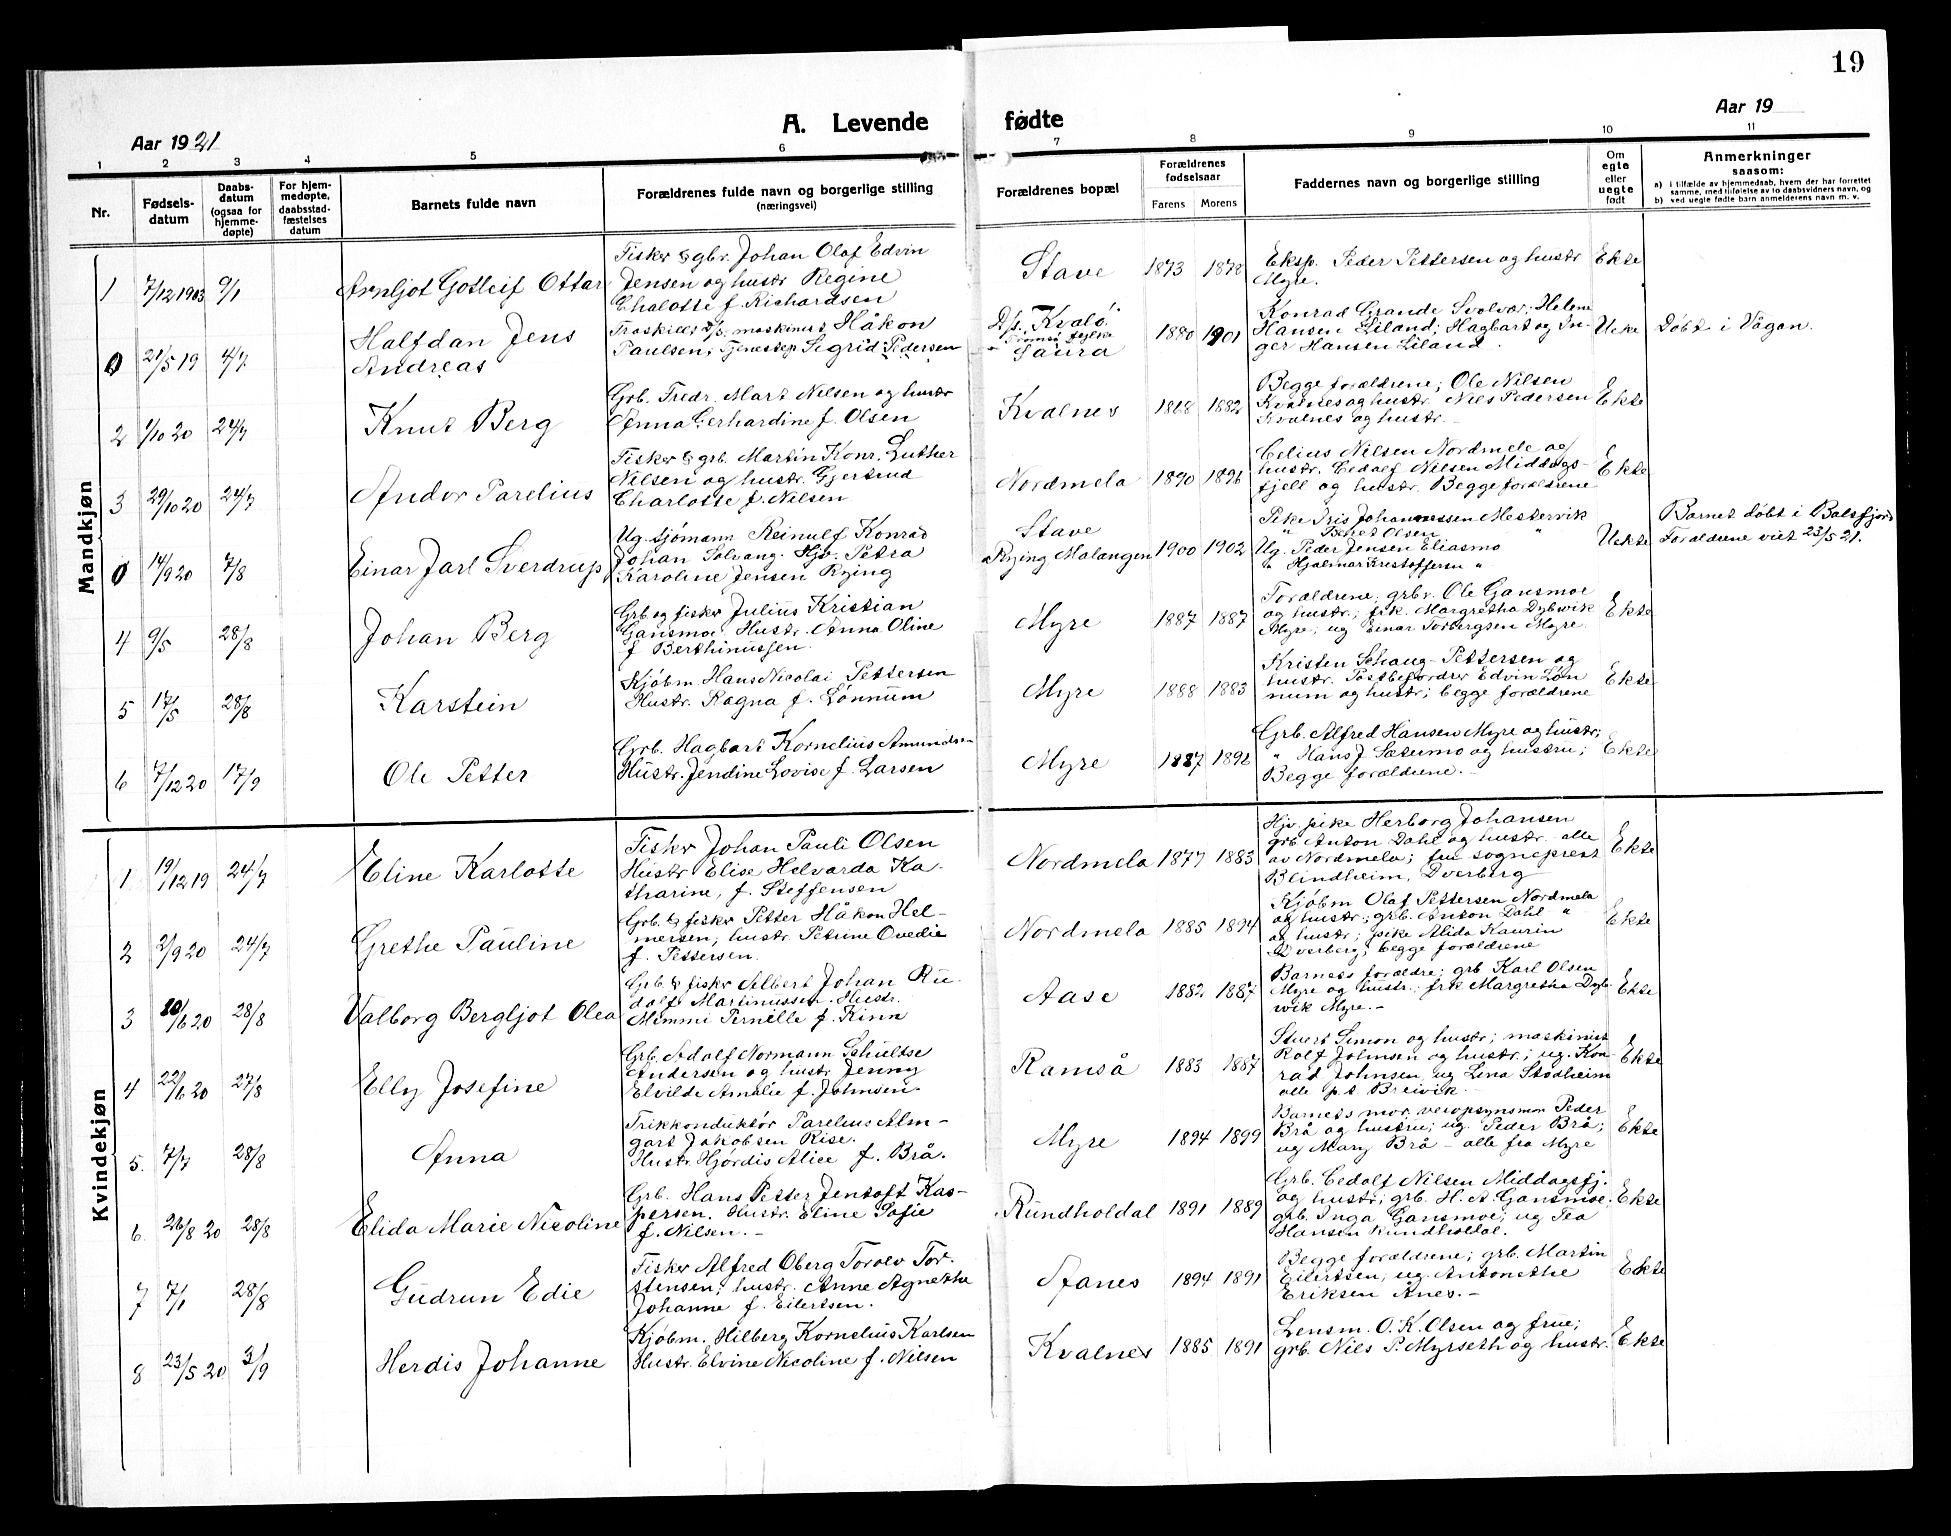 19
Aar 1921
A. Levende fødte
Aar 19
1 2 3 4 5 6 7 8 9 10 11
Nr.
Fødsels-
datum
Daabs-
datum
(ogsaa for
hjemme-
døpte)
For hjem-
medøpte,
daabsstad-
fæstelses
datum
Barnets fulde navn
Forældrenes fulde navn og borgerlige stilling
(næringsvei)
Forældrenes bopæl
Forældrenes
fødselsaar
Farens Morens
Faddernes navn og borgerlige stilling
Om
egte
eller
uegte
født
Anmerkninger
saasom:
a) i tilfælde av hjemmedaab, hvem der har forrettet
samme, med tilføielse av to daabsvidners navn, og
b) ved uegte fødte barn anmelderens navn m. v.
Mandkjøn
1 7/12 1903 9/1
Arnljot Gotleif Ottar
Fisker & gbr. Johan Olaf Edvin
Jensen og hustr Regine
Chalotte f. Richardsen
Stave 1873 1878
Eksp. Peder Pettersen og hustr
Myre.
Ekte
0 21/5 19 4/7
Halfdan Jens
Andreas
Fraskilt d/s. maskinist Håkon
Paulsen; Tjenestep Sigrid Pedersen
D/s. Kvalö.
Tromsö fylke
Saura
1880 1901
Konrad Grande Svolvær; Helene
Hansen Liland; Hagbart og In-
ger Hansen Liland.
Uekte
Döbt i Vågan.
2 1/10 20 24/7
Knut Berg
Grb. Fredr. Mart Nilsen og hustr
Anna Gerhardine f. Olsen
Kvalnes 1868 1882
Begge forældrene; Ole Nilsen
Kvalnes og hustr. Niels Pedersen
Kvalnes og hustr.
Ekte
3 29/10 20 24/7
Andor Parelius
Fisker & grb. Martin Konr. Luther
Nilsen og hustr. Gjertrud
Charlotte f. Nilsen
Nordmela 1890 1896
Celius Nilsen Nordmele og
hustr. Cedolf Nilsen Middags-
fjell og hustr. Begge forældrene
Ekte
0 14/9 20 7/8
Einar Jarl Sverdrup
Ug. sjömann Reinulf Konrad
Johan Solvang. Hjv. Petra
Karoline Jensen Rying
Stave
Rying Malangen
1900 1902
Pike Iris Johannessen Mestervik
" Olsen "
Ug. Peder Jensen Eliasmo
" Hjalmar Kristoffersen "
Uekte
Barnet döbt i Balsfjord
Forældrene viet 23/5 21.
4 9/5 28/8
Johan Berg
Grb. og fisker Julius Kristian
Gansmoe. Hustr. Anna Oline
f Berthinussen.
Myre 1887 1887
Forældrene; grbr. Ole Gansmoe
og hustr.; frk. Margretha Dybwik
Myre; ug Einar Torbergsen Myre.
Ekte
5 17/5 28/8
Karstein
Kjöbm. Hans Nicolai Pettersen
Hustr. Ragna f. Lönnum
Myre 1888 1883
Kristen Schaug-Pettersen og
hustr. Postbefordrer Edvin Lön
num og hustr; begge forældrene
Ekte
6 7/12 20 17/9
Ole Petter
Grb. Hagbart Kornelius Amundsen
Hustr. Jendine Lovise f. Larsen
Myre 1887 1892
Grb. Alfred Hansen Myre og hustr;
" Hans J Sætermo og hustru;
Begge forældrene.-
Ekte
Kvindekjøn
1 19/12 19 24/7
Eline Karlotte
Fisker Johan Pauli Olsen
Hustr Elise Helvarda Ka-
tharine, f. Steffensen
Nordmela 1877 1883
Hjv. pike Herborg Johansen
grb. Anton Dahl og hustr. alle
av Nordmela; fru sogneprest
Blindheim, Dverberg
Ekte
2 2/9 20 24/7
Grethe Pauline
Grb. & fisker Petter Håkon Hel-
mersen; hustr. Petrine Ovedie
f. Pettersen.
Nordmela 1885 1894
Kjöbm Olaf Pettersen Nordmela
og hustr.; grb. Anton Dahl "
og hustr; pike Alida Kaurin
Dverberg; begge forældrene
Ekte
3 10/6 20 28/8
Valborg Bergljot Olea
Grb & fisker Albert Johan Ru-
dolf Martinussen. Hustr.
Mimmi Pernille f. Kinn
Aase 1882 1887
Barnets forældre; grb Karl Olsen
Myre og hustr.; frk Margretha Dyb-
wik Myre.-
Ekte
4 22/6 20 27/8
Elly Josefine
Grb. Adolf Normann Schultse
Andersen og hustr Jenny
Elvilde Amalie f. Johnsen.
Ramså 1883 1887
Stuert Simon og hustr; maskinist
Rolf Johnsen og hustr.; ug. Kon-
rad Johnsen, ug Lina Stodheim
alle p.t Breivik.-
Ekte
5. 7/7 28/8
Anna
Trikkonduktör Parelius Alm-
gart Jakobsen Rise.
Hustr. Hjördis Alice f. Brå.
Myre 1894 1899
Barnets mor, veiopsynsmon Peder
Brå og hustru; ug. Peder Brå;
ug Mary Brå - alle fra Myre
Ekte
6. 26/8 20 28/8
Elida Marie Nicoline
Grb. Hans Petter Jentoft Kas-
persen. Hustr. Eline Sofie
f. Nilsen.-
Rundholdal 1891 1889
Grb. Cedolf Nilsen Middagsfj.
og hustr; grb. H. A. Gansmoe.
grb. Inga Gansmoe; ug Tea
Hansen Rundholdal.
Ekte
7 7/1 28/8
Gudrun Edie
Fisker Alfred Oberg Torolv Tor-
stensen; hustr. Anne Agnethe
Johanne f. Eilertsen.
Aanes 1894 1891
Begge forældrene; grb. Martin
Eilertsen; ug. Antonethe
Eriksen Ånes.-
Ekte
8 23/5 20 3/9
Herdis Johanne
Kjöbm. Hilberg Kornelius Karlsen
Hustr. Elvine Nicoline f. Nilsen
Kvalnes 1885 1891
Lensm. O. K. Olsen og frue;
grb. Nils P. Myrseth og hustr.
Ekte